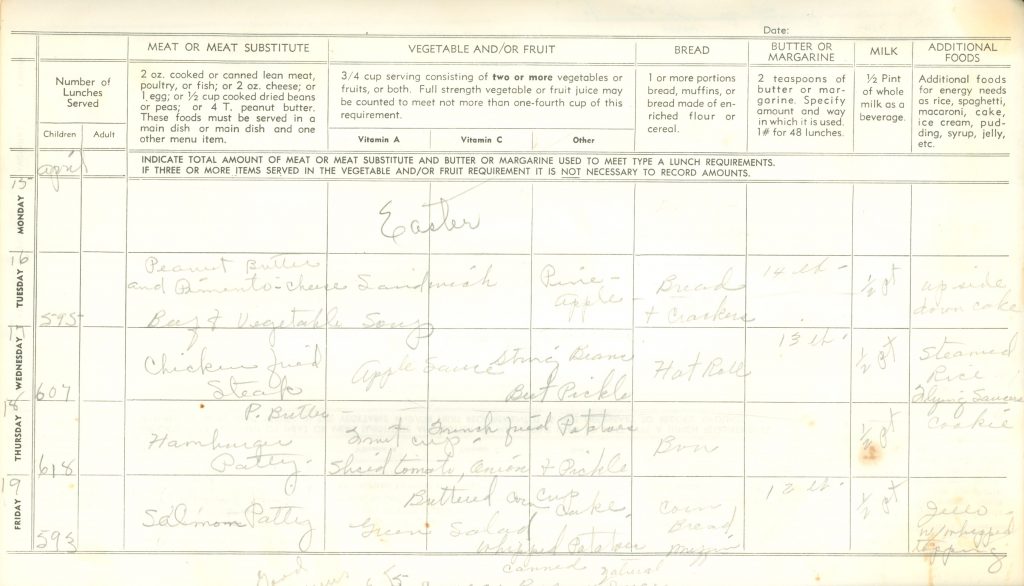 Date:
MEAT OR MEAT SUBSTITUTE
VEGETABLE AND/OR FRUIT
BREAD
BUTTER OR
MARGARINE
MILK
ADDITIONAL
FOODS
Number of
Lunches
Served
2 oz. cooked or canned lean meat,
poultry, or fish; or 2 oz. cheese; or
1 egg; or ½ cup cooked dried beans
or peas; or 4 T. peanut butter.
These foods must be served in a
main dish or main dish and one
other menu item.
3/4 cup serving consisting of two or more vegetables or
fruits, or both. Full strength vegetable or fruit juice may
be counted to meet not more than one-fourth cup of this
requirement.
1 or more portions
bread, muffins, or
bread made of en-
riched flour or
cereal.
2 teaspoons of
butter or mar-
garine. Specify
amount and way
in which it is used.
1# for 48 lunches.
½ Pint
of whole
milk as a
beverage.
Additional foods
for energy needs
as rice, spaghetti,
macaroni, cake,
ice cream, pud-
ding, syrup, jelly,
etc.
Children
Adult
Vitamin A
Vitamin C
Other
April
INDICATE TOTAL AMOUNT OF MEAT OR MEAT SUBSTITUTE AND BUTTER OR MARGARINE USED TO MEET TYPE A LUNCH REQUIREMENTS.
IF THREE OR MORE ITEMS SERVED IN THE VEGETABLE AND/OR FRUIT REQUIREMENT IT IS NOT NECESSARY TO RECORD AMOUNTS.
15
MONDAY
Easter
16
TUESDAY
595
Peanut Butter
and Pimento-cheese Sandwich
Beef & Vegetable Soup
Pine-
apple
Bread
+ Crackers
14 lb-
½ pt
upside
down cake
17
WEDNESDAY
607
Chicken fried
Steak
Apple Sauce
String Beans
Beet Pickle
Hot Roll
13 lb.
½ pt
Steamed
Rice
Flying Saucers
Cookie
18
THURSDAY
618
P. Butter
Hamburger
Patty
Fruit cup
French fried Potatoes
Sliced tomato, onion & Pickle
Bun
½ pt
19
FRIDAY
593
Salmon Patty
Buttered Corn
Cup Cake
Green Salad
Whipped Potatoes
Corn
Bread
muffin
12 lb.
½ pt
Jello
w/whipped
topping
Good
canned